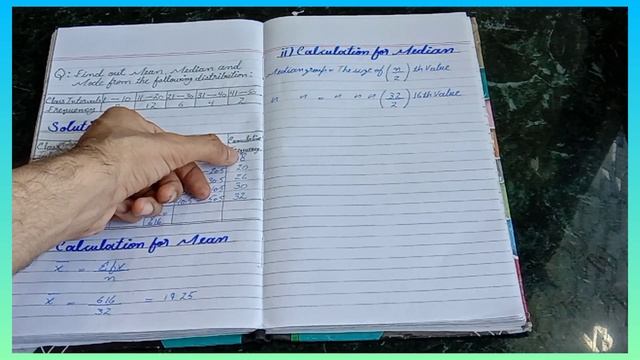 Q: Find out Mean, Median and
Mode from the following distribution:
Class Intervals 1—10 11—20 21—30 31—40 41—50
Frequency 12 6 4 2
Solut
Cumulative
18
20.5 20
30.5 26
30
50.5 32
616
Calculation for Mean
x̄ = Σfx
n
x̄ = 616 = 19.25
32
ii) Calculation for Median
Median group = The size of (n/2) th Value
〃 〃 = 〃 〃 〃 (32/2) 16th Value